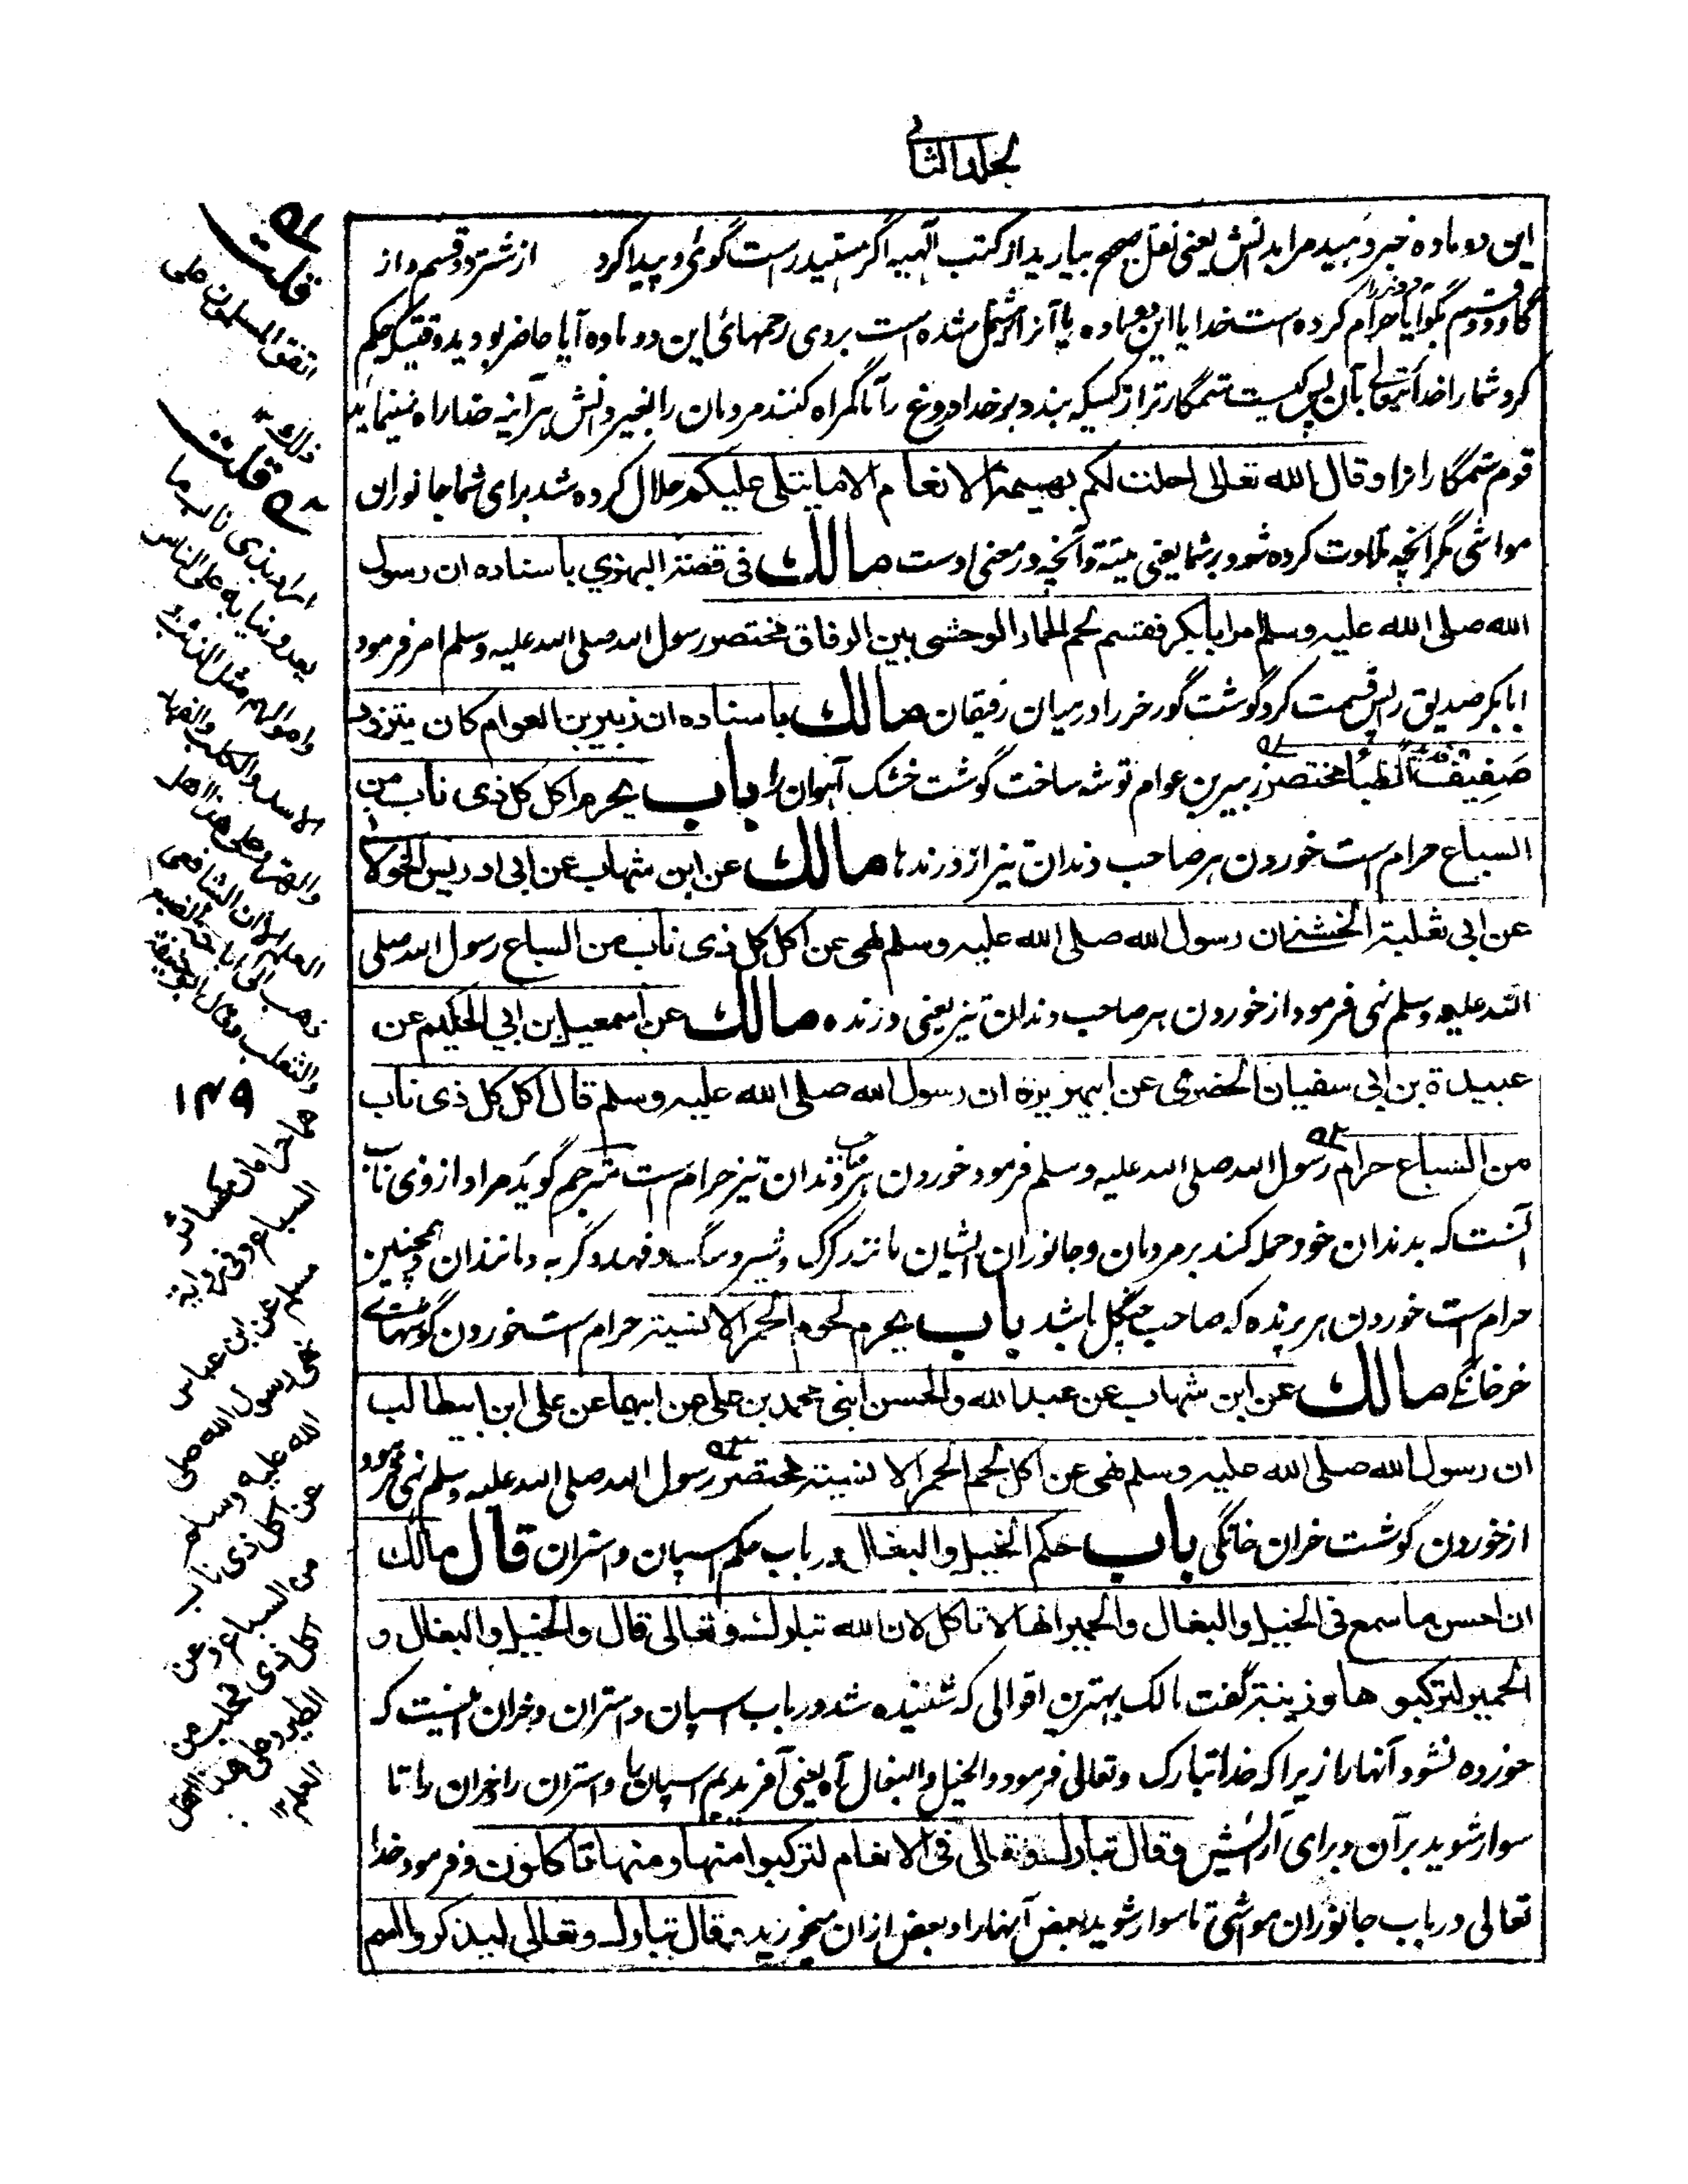 الجلد الثانی
این دو ماده خبر دهید مرا بدانش یعنی نقل صحیح بیارید از کتب الٓهیه اگر هستید راست گوی و پیدا کرد از شتر دو قسم و از
گاو دو قسم بگو آیا دو نر را حرام کرده است خدا یا این دو ماده یا آنرا مشتمل شده است بروی رحمهائی این دو ماده آیا حاضر بودید وقتیکه حکم
کرد شما را خدا تعالی بآن پس کیست ستمگار تر از کسیکه بندد بر خدا دروغ را تا گمراه کنند مردمان را بغیر دانش هر آئینه خدا راه نمینماید
قوم ستمگاران را و قال الله تعالی احلت لکم بهیمة الانعام الا ما یتلی علیکم حلال کرده شد برای شما جانوران
مواشی مگر آنچه تلاوت کرده شود بر شما یعنی میتة و آنچه در معنی اوست مالك فی قصة البهزي باسناده ان رسول
الله صلی الله علیه وسلم امر ابا بکر فقسم لحم الحمار الوحشی بین الرفاق مختصر رسول الله صلی الله علیه وسلم امر فرمود
ابا بکر صدیق را پس قسمت کرد گوشت گور خر را در میان رفیقان مالك باسناده ان زبیر بن العوام کان یتزود
صَفِیفَ الظباء مختصر زبیر بن عوام توشه ساخت گوشت خشک آهوان را باب یحرم اکل کل ذی ناب من
السباع حرام است خوردن هر صاحب دندان تیز از درندها مالك عن ابن شهاب عن ابی ادریس الخولا
عن ابی ثعلبة الخشنی ان رسول الله صلی الله علیه وسلم نهی عن اکل کل ذی ناب من السباع رسول الله صلی
الله علیه وسلم نهی فرمود از خوردن هر صاحب دندان تیز یعنی درنده مالك عن اسمعیل ابن ابي الحکیم عن
عبیدة بن ابی سفیان الحضرمی عن ابی هریرة ان رسول الله صلی الله علیه وسلم قال اکل کل ذی ناب
من السباع حرام رسول الله صلی الله علیه وسلم فرمود خوردن هر صاحب دندان تیز حرام است مترجم گوید مراد از ذی ناب
آنست که بدندان خود حمله کند بر مردمان و جانوران ایشان مانند گرگ و شیر و سگ و فهد و گربه و مانند آن و همچنین
حرام است خوردن هر پرنده که صاحب چنگل باشد باب یحرم لحوم الحمر الانسیة حرام است خوردن گوشتهای
خر خانگے مالك عن ابن شهاب عن عبد الله والحسن ابنی محمد بن علی عن ابیهما عن علی ابن ابیطالب
ان رسول الله صلی الله علیه وسلم نهی عن اکل لحم الحمر الانسیة مختصر رسول الله صلی الله علیه وسلم نهی فرمود
از خوردن گوشت خران خانگی باب حکم الخیل والبغال در باب حکم اسپان و استران قال مالك
ان احسن ما سمع فی الخیل والبغال والحمیر انها لا تاکل لان الله تبارك وتعالی قال والخیل والبغال و
الحمیر لترکبوها وزینة گفت مالک بهترین اقوالی که شنیده شد در باب اسپان و استران و خران اینست که
خورده نشود آنها را زیرا که خدا تبارک وتعالی فرمود والخیل والبغال آه یعنی آفریدیم اسپان را و استران را و خران را تا
سوار شوید بر آن و برای آرایش وقال تبارك وتعالی فی الانعام لترکبوا منها ومنها تاکلون و فرمود خدا
تعالی در باب جانوران مواشی تا سوار شوید بعض آنها را و بعض ازان میخورید وقال تبارك وتعالی لیذکروا اسم
قلت
اتفق المسلمون علی
ذلك
قلت
اراد بذی ناب ما
یعدو بنابه علی الناس
واموالهم مثل الذئب و
الاسد والکلب والفهد
والهر وعلی هذا اهل
العلم الا ان الشافعی
ذهب الی اباحة الضبع
والثعلب وقال ابو حنیفة
۱۴۹
هما حرامان کسائر
السباع وفی روایة
مسلم عن ابن عباس
نهی رسول الله صلی
الله علیه وسلم
عن اکل ذی ناب
من السباع وعن
اکل ذی مخلب من
الطیر وعلی هذا اهل
العلم